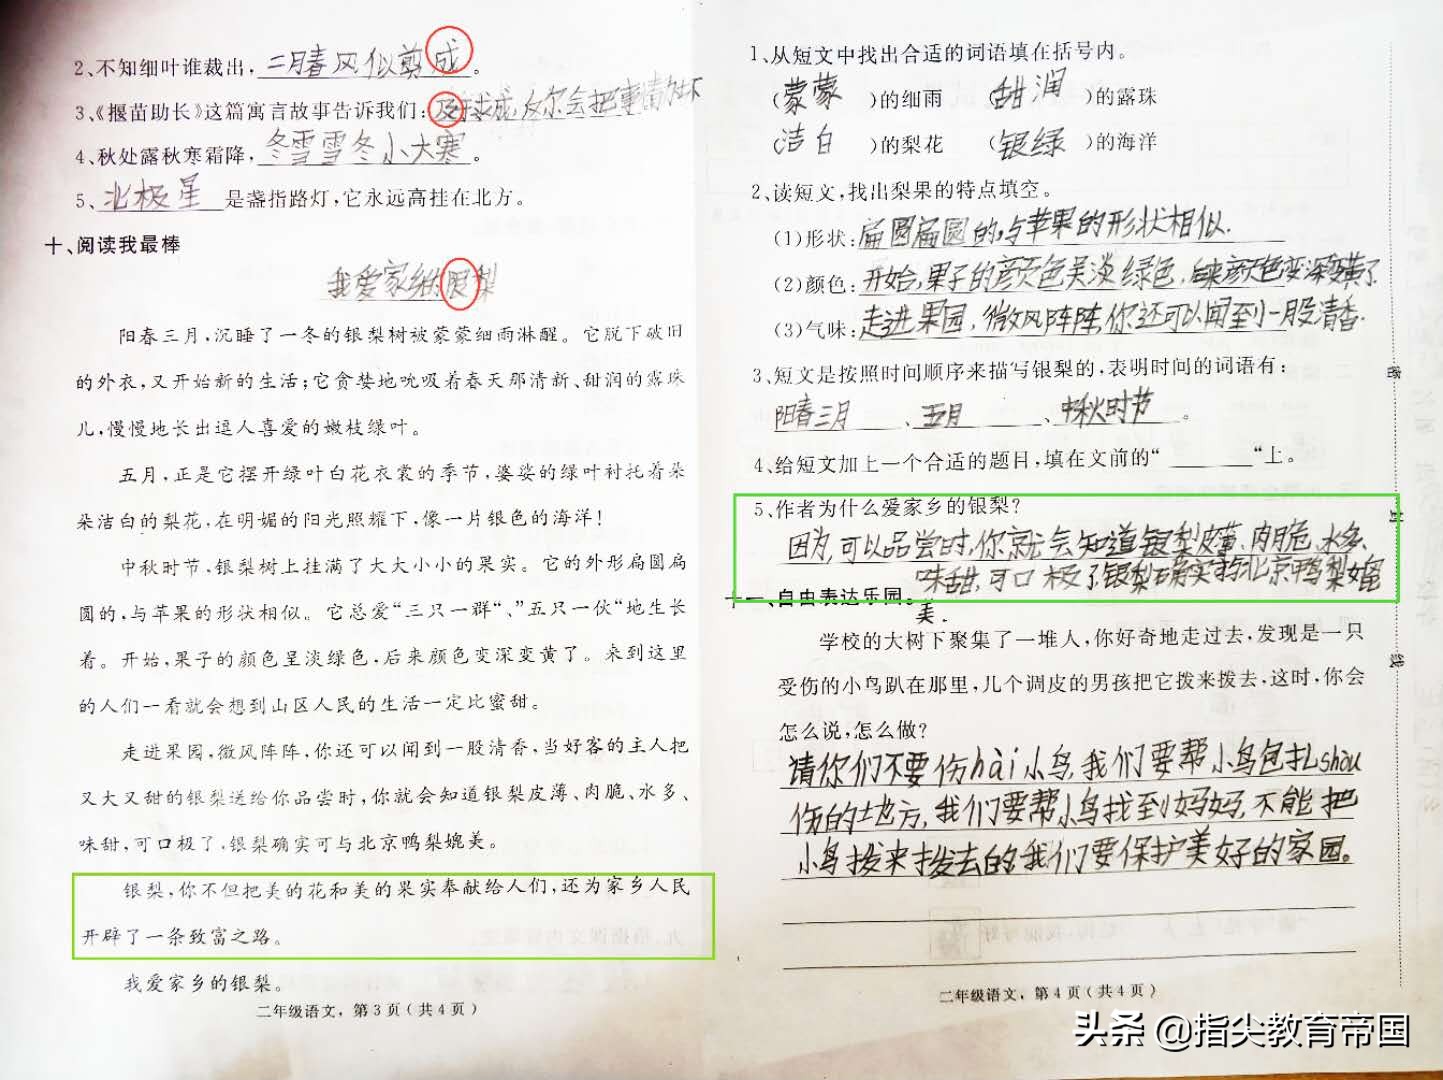 2、不知细叶谁裁出，二月春风似剪成。
3、《揠苗助长》这篇寓言故事告诉我们：及求成,反尔会把事情办坏
4、秋处露秋寒霜降，冬雪雪冬小大寒。
5、北极星是盏指路灯，它永远高挂在北方。
十、阅读我最棒
我爱家乡的银梨
阳春三月，沉睡了一冬的银梨树被蒙蒙细雨淋醒。它脱下破旧
的外衣，又开始新的生活；它贪婪地吮吸着春天那清新、甜润的露珠
儿，慢慢地长出逗人喜爱的嫩枝绿叶。
五月，正是它摆开绿叶白花衣裳的季节，婆娑的绿叶衬托着朵
朵洁白的梨花，在明媚的阳光照耀下，像一片银色的海洋！
中秋时节，银梨树上挂满了大大小小的果实。它的外形扁圆扁
圆的，与苹果的形状相似。它总爱“三只一群”、“五只一伙”地生长
着。开始，果子的颜色呈淡绿色，后来颜色变深变黄了。来到这里
的人们一看就会想到山区人民的生活一定比蜜甜。
走进果园，微风阵阵，你还可以闻到一股清香，当好客的主人把
又大又甜的银梨送给你品尝时，你就会知道银梨皮薄、肉脆、水多、
味甜，可口极了，银梨确实可与北京鸭梨媲美。
银梨，你不但把美的花和美的果实奉献给人们，还为家乡人民
开辟了一条致富之路。
我爱家乡的银梨。
二年级语文，第3页（共4页）
1、从短文中找出合适的词语填在括号内。
（蒙蒙）的细雨 （甜润）的露珠
洁白）的梨花 （银绿）的海洋
2、读短文，找出梨果的特点填空。
（1）形状：扁圆扁圆的,与苹果的形状相似.
（2）颜色：开始,果子的颜色呈淡绿色,后来颜色变深变黄了
（3）气味：走进果园，微风阵阵,你还可以闻到一股清香.
3、短文是按照时间顺序来描写银梨的，表明时间的词语有：
阳春三月、五月、中秋时节。
4、给短文加上一个合适的题目，填在文前的“______“上。
5、作者为什么爱家乡的银梨？
因为,可以品尝时,你就会知道银梨皮薄、肉脆、水多、
味甜,可口极了银梨确实可与北京鸭梨媲
美.
十一、自由表达乐园。
学校的大树下聚集了一堆人，你好奇地走过去，发现是一只
受伤的小鸟趴在那里，几个调皮的男孩把它拨来拨去，这时，你会
怎么说，怎么做？
请你们不要伤hài小鸟,我们要帮小鸟包扎shòu
伤的地方,我们要帮小鸟找到妈妈,不能把
小鸟拨来拨去的,我们要保护美好的家园。
二年级语文，第4页（共4页）
密
封
线
头条 @指尖教育帝国